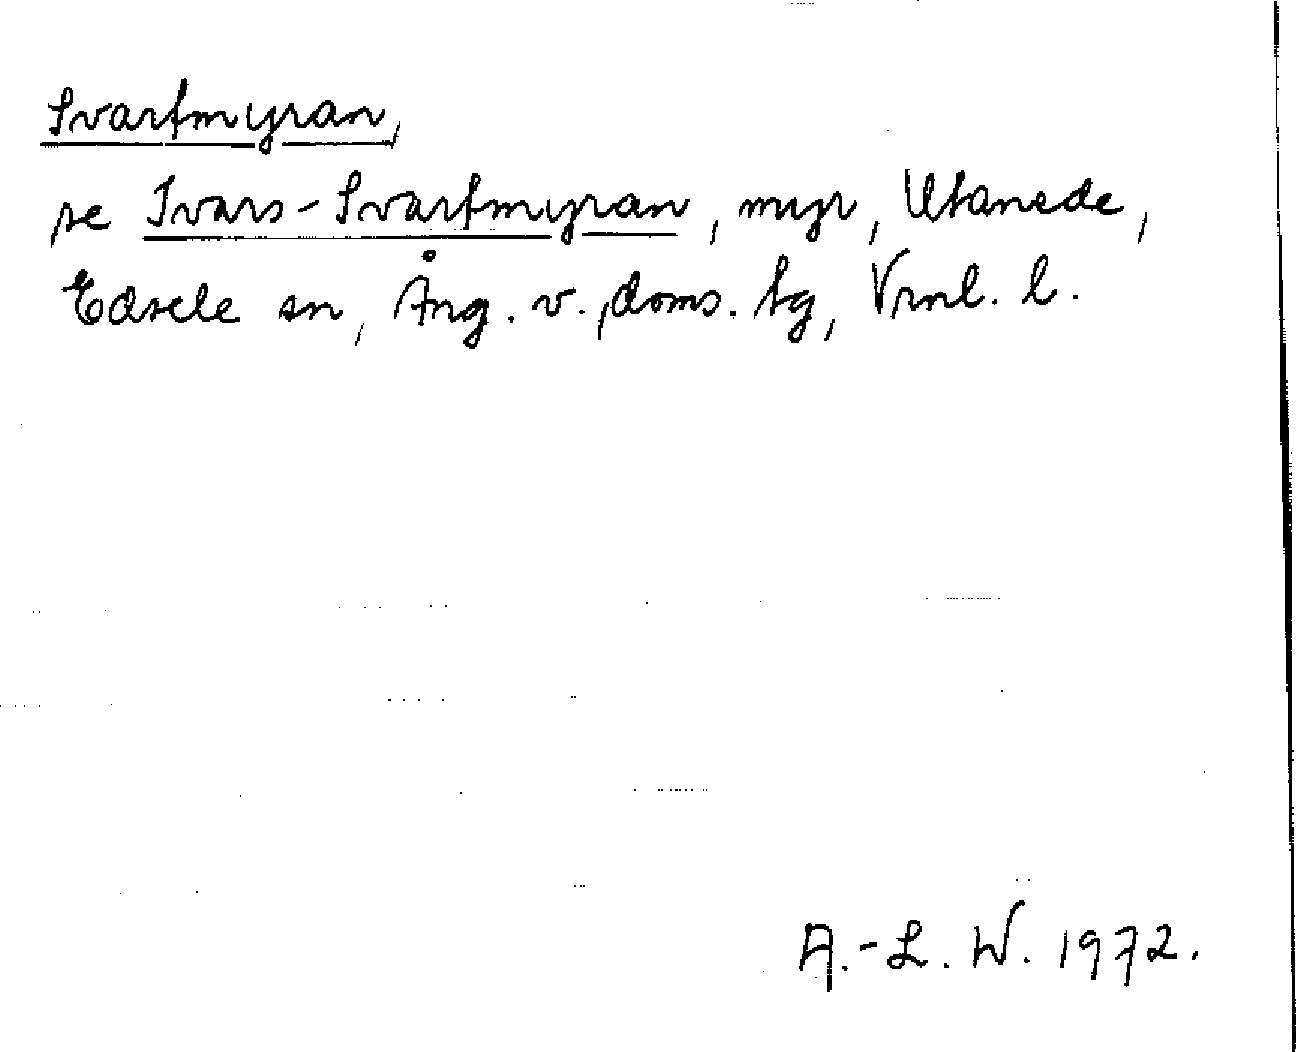 Svartmyran,
se Ivars-Svartmyran, myr, Utanede,
Edsele sn, Ång. v. doms. tg, Vrnl. l.
A.-L. W. 1972.